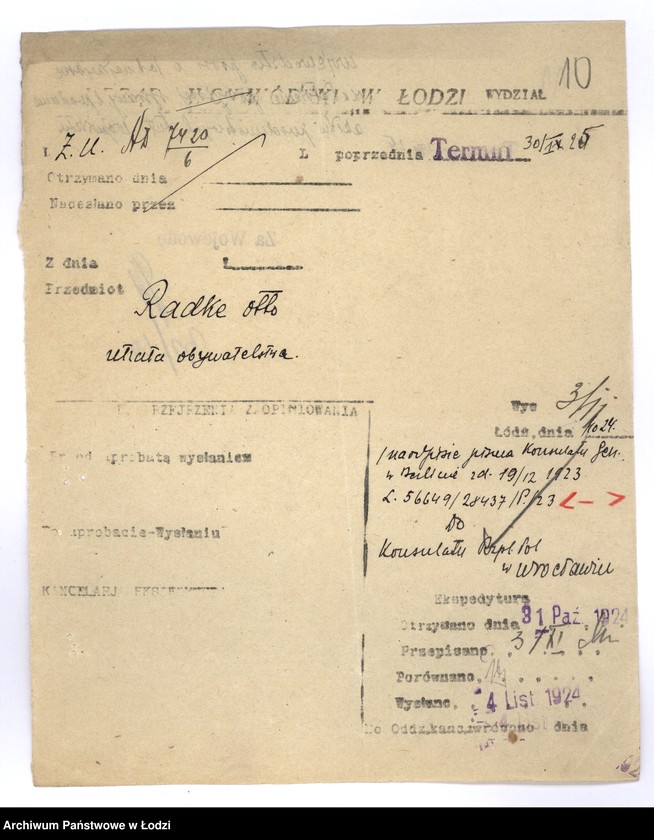 10
WOJEWÓDZKI W ŁODZI WYDZIAŁ
L. Z.U. AD 7420/6 L poprzednia Termin 30/IX 25
Otrzymano dnia
Nadesłano przez
Za Wojewodę
Z dnia L.
Przedmiot
Radke Otto
utrata obywatelstwa.
DO PRZEJRZENIA ZAOPINIOWANIA
Przed aprobatą wysłaniem
Po aprobacie-Wysłaniu
KANCELARJA
Wys 3/
Łódź, dnia 1924.
/na odpisie pisma Konsulatu Gen.
w Berlinie zd. 19/12 1923
L. 56649/28437/P./23
Do
Konsulatu Rzpl Pol
w Wrocławiu
Ekspedytura
Otrzymano dnia 31 Paź. 1924
Przepisano. 3/XI
Porównano.
Wysłano. 4 List 1924
Do Oddz.kanc.zwrócono dnia
Archiwum Państwowe w Łodzi